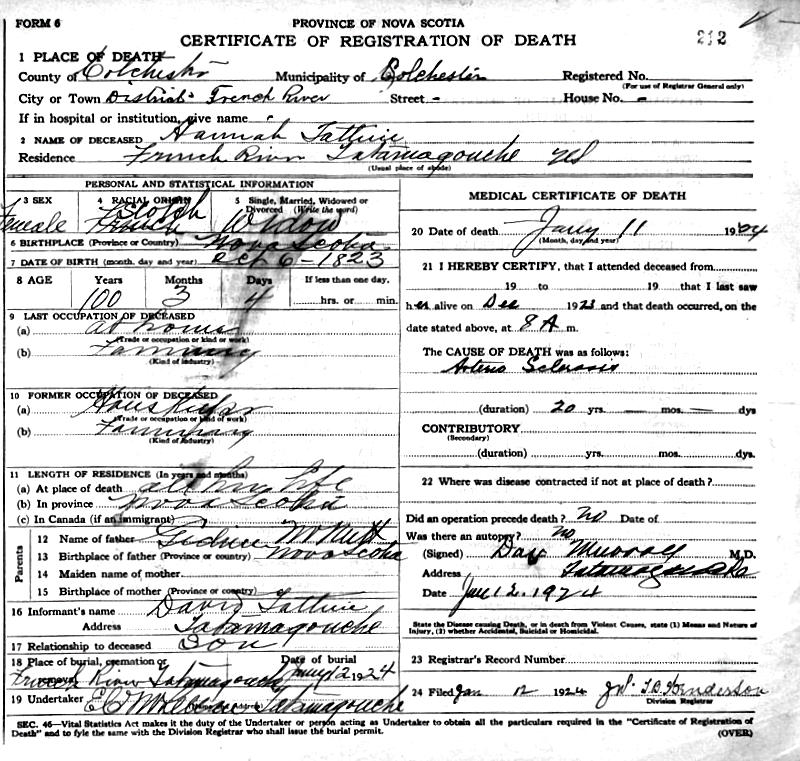 FORM 6
PROVINCE OF NOVA SCOTIA
CERTIFICATE OF REGISTRATION OF DEATH
212
1 PLACE OF DEATH
County of Colchester Municipality of Colchester Registered No.
(For use of Registrar General only)
City or Town District French River Street - House No. -
If in hospital or institution, give name -
2 NAME OF DECEASED Hannah Tattrie
Residence French River Tatamagouche
(Usual place of abode)
PERSONAL AND STATISTICAL INFORMATION
3 SEX 4 RACIAL ORIGIN 5 Single, Married, Widowed or Divorced (Write the word)
Female Scotch Widow
6 BIRTHPLACE (Province or Country) Nova Scotia
7 DATE OF BIRTH (month, day and year) Oct 6-1823
8 AGE Years Months Days If less than one day,
100 3 4 hrs. or min.
9 LAST OCCUPATION OF DECEASED
(a) at home
(Trade or occupation or kind or work)
(b) Farming
(Kind of industry)
10 FORMER OCCUPATION OF DECEASED
(a)
(Trade or occupation or kind of work)
(b) Farming
(Kind of industry)
11 LENGTH OF RESIDENCE (In years and months)
(a) At place of death all her life
(b) In province Nova Scotia
(c) In Canada (if an immigrant)
Parents
12 Name of father McNutt
13 Birthplace of father (Province or country) Nova Scotia
14 Maiden name of mother
15 Birthplace of mother (Province or country)
16 Informant's name David Tattrie
Address Tatamagouche
17 Relationship to deceased Son
18 Place of burial, cremation or Date of burial
French River Tatamagouche Jany 12 1924
19 Undertaker Tatamagouche
MEDICAL CERTIFICATE OF DEATH
20 Date of death Jany 11 1924
(Month, day and year)
21 I HEREBY CERTIFY, that I attended deceased from
19 to 19 that I last saw
her alive on Dec 1923 and that death occurred, on the
date stated above, at 8 A m.
The CAUSE OF DEATH was as follows:
Arterio Sclerosis
(duration) 20 yrs. — mos. — dys
CONTRIBUTORY
(Secondary)
(duration) yrs. mos. dys
22 Where was disease contracted if not at place of death?
Did an operation precede death? no Date of
Was there an autopsy? no
(Signed) Dan Murray M.D.
Address Tatamagouche
Date Jan 12. 1924
State the Disease causing Death, or in death from Violent Causes, state (1) Means and Nature of Injury, (2) whether Accidental, Suicidal or Homicidal.
23 Registrar's Record Number
24 Filed Jan 12 1924 T.B. Henderson
Division Registrar
SEC. 46—Vital Statistics Act makes it the duty of the Undertaker or person acting as Undertaker to obtain all the particulars required in the "Certificate of Registration of
Death" and to fyle the same with the Division Registrar who shall issue the burial permit. (OVER)